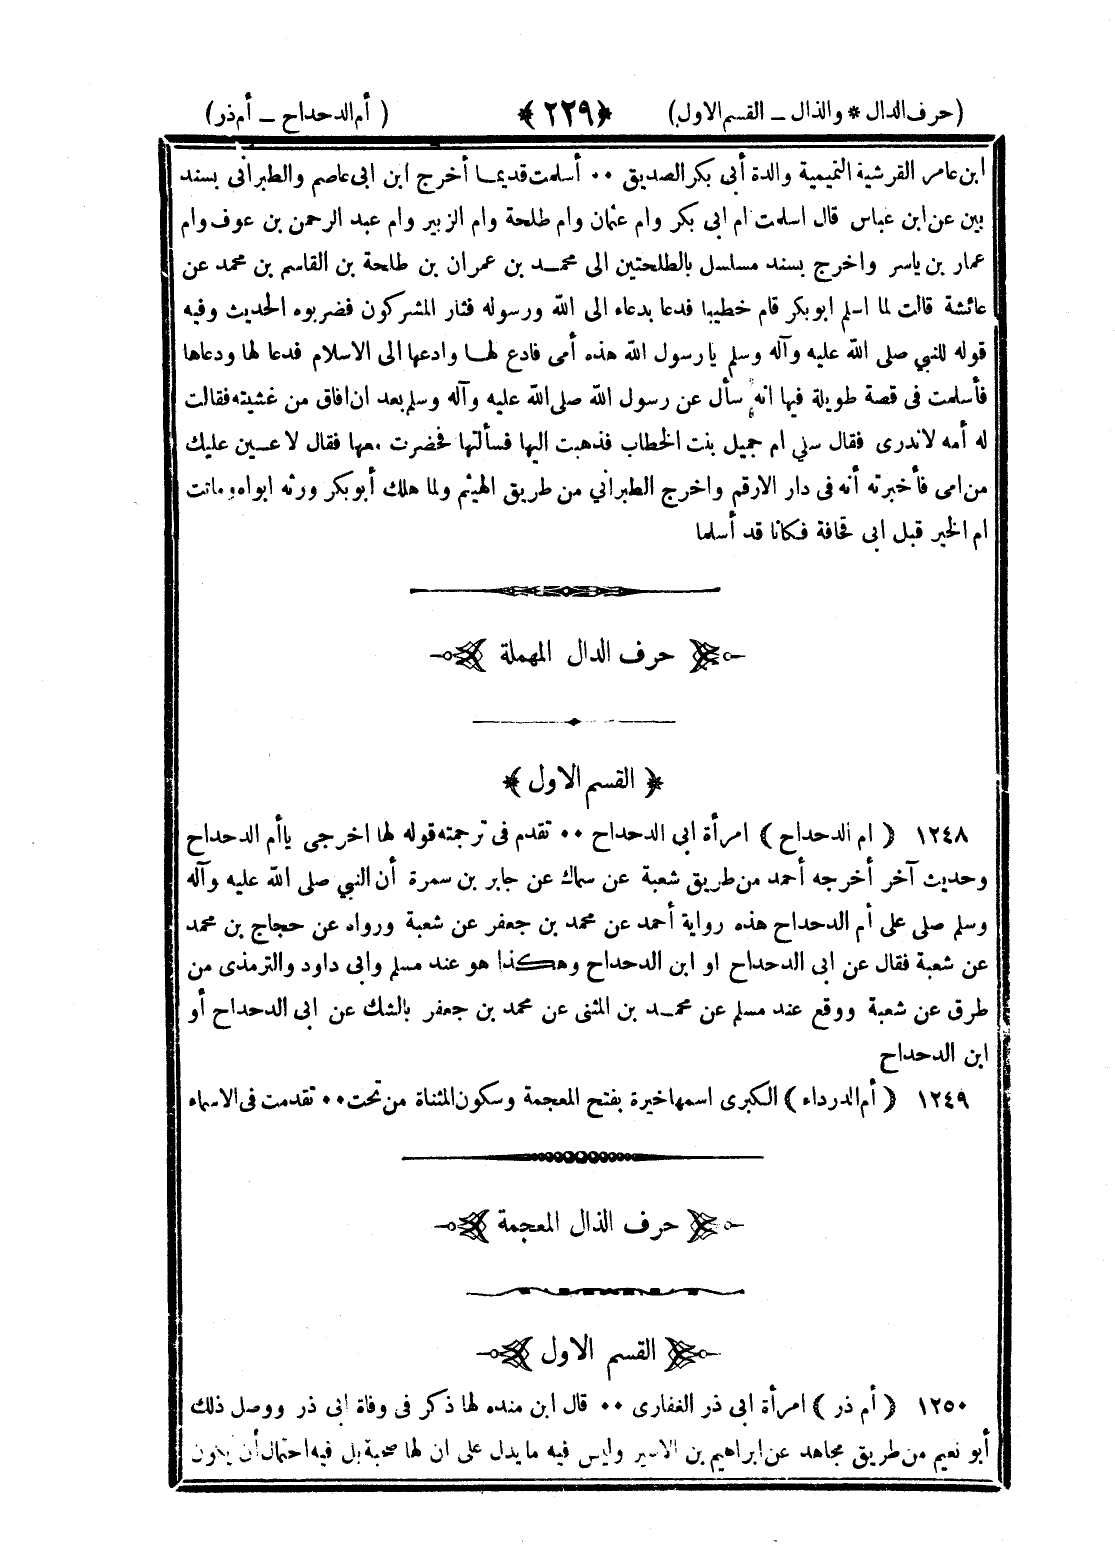 (حرف الدال * والذال ــ القسم الاول) ﴿٢٢٩﴾ (أم الدحداح ــ أم ذر)
ابن عامر القرشية التميمية والدة أبى بكر الصديق ٠٠ أسلمت قديما أخرج ابن ابى عاصم والطبرانى بسند
بين عن ابن عباس قال اسلمت ام ابى بكر وام عثمان وام طلحة وام الزبير وام عبد الرحمن بن عوف وام
عمار بن ياسر واخرج بسند مسلسل بالطلحتين الى محمد بن عمران بن طلحة بن القاسم بن محمد عن
عائشة قالت لما اسلم ابو بكر قام خطيبا فدعا بدعاء الى الله ورسوله فثار المشركون فضربوه الحديث وفيه
قوله للنبي صلى الله عليه وآله وسلم يا رسول الله هذه أمى فادع لها وادعها الى الاسلام فدعا لها ودعاها
فأسلمت فى قصة طويلة فيها انه سأل عن رسول الله صلى الله عليه وآله وسلم بعد ان افاق من غشيته فقالت
له أمه لا ندرى فقال سلي ام جميل بنت الخطاب فذهبت اليها فسألتها فحضرت معها فقال لا عين عليك
من امى فأخبرته أنه فى دار الارقم واخرج الطبراني من طريق الهيثم ولما هلك أبو بكر ورثه ابواه وماتت
ام الخير قبل ابى قحافة فكانا قد أسلما
حرف الدال المهملة
﴿ القسم الاول ﴾
١٢٤٨ ( ام الدحداح ) امرأة ابى الدحداح ٠٠ تقدم فى ترجمته قوله لها اخرجى يا أم الدحداح
وحديث آخر أخرجه أحمد من طريق شعبة عن سماك عن جابر بن سمرة أن النبي صلى الله عليه وآله
وسلم صلى على أم الدحداح هذه رواية أحمد عن محمد بن جعفر عن شعبة ورواه عن حجاج بن محمد
عن شعبة فقال عن ابى الدحداح او ابن الدحداح وهكذا هو عند مسلم وابى داود والترمذى من
طرق عن شعبة ووقع عند مسلم عن محمد بن المثنى عن محمد بن جعفر بالشك عن ابى الدحداح أو
ابن الدحداح
١٢٤٩ ( أم الدرداء ) الكبرى اسمها خيرة بفتح المعجمة وسكون المثناة من تحت ٠٠ تقدمت فى الاسماء
حرف الذال المعجمة
القسم الاول
١٢٥٠ ( أم ذر ) امرأة ابى ذر الغفارى ٠٠ قال ابن منده لها ذكر فى وفاة ابى ذر ووصل ذلك
أبو نعيم من طريق مجاهد عن ابراهيم بن الاسير وليس فيه ما يدل على ان لها صحبة بل فيه احتمال أن يكون